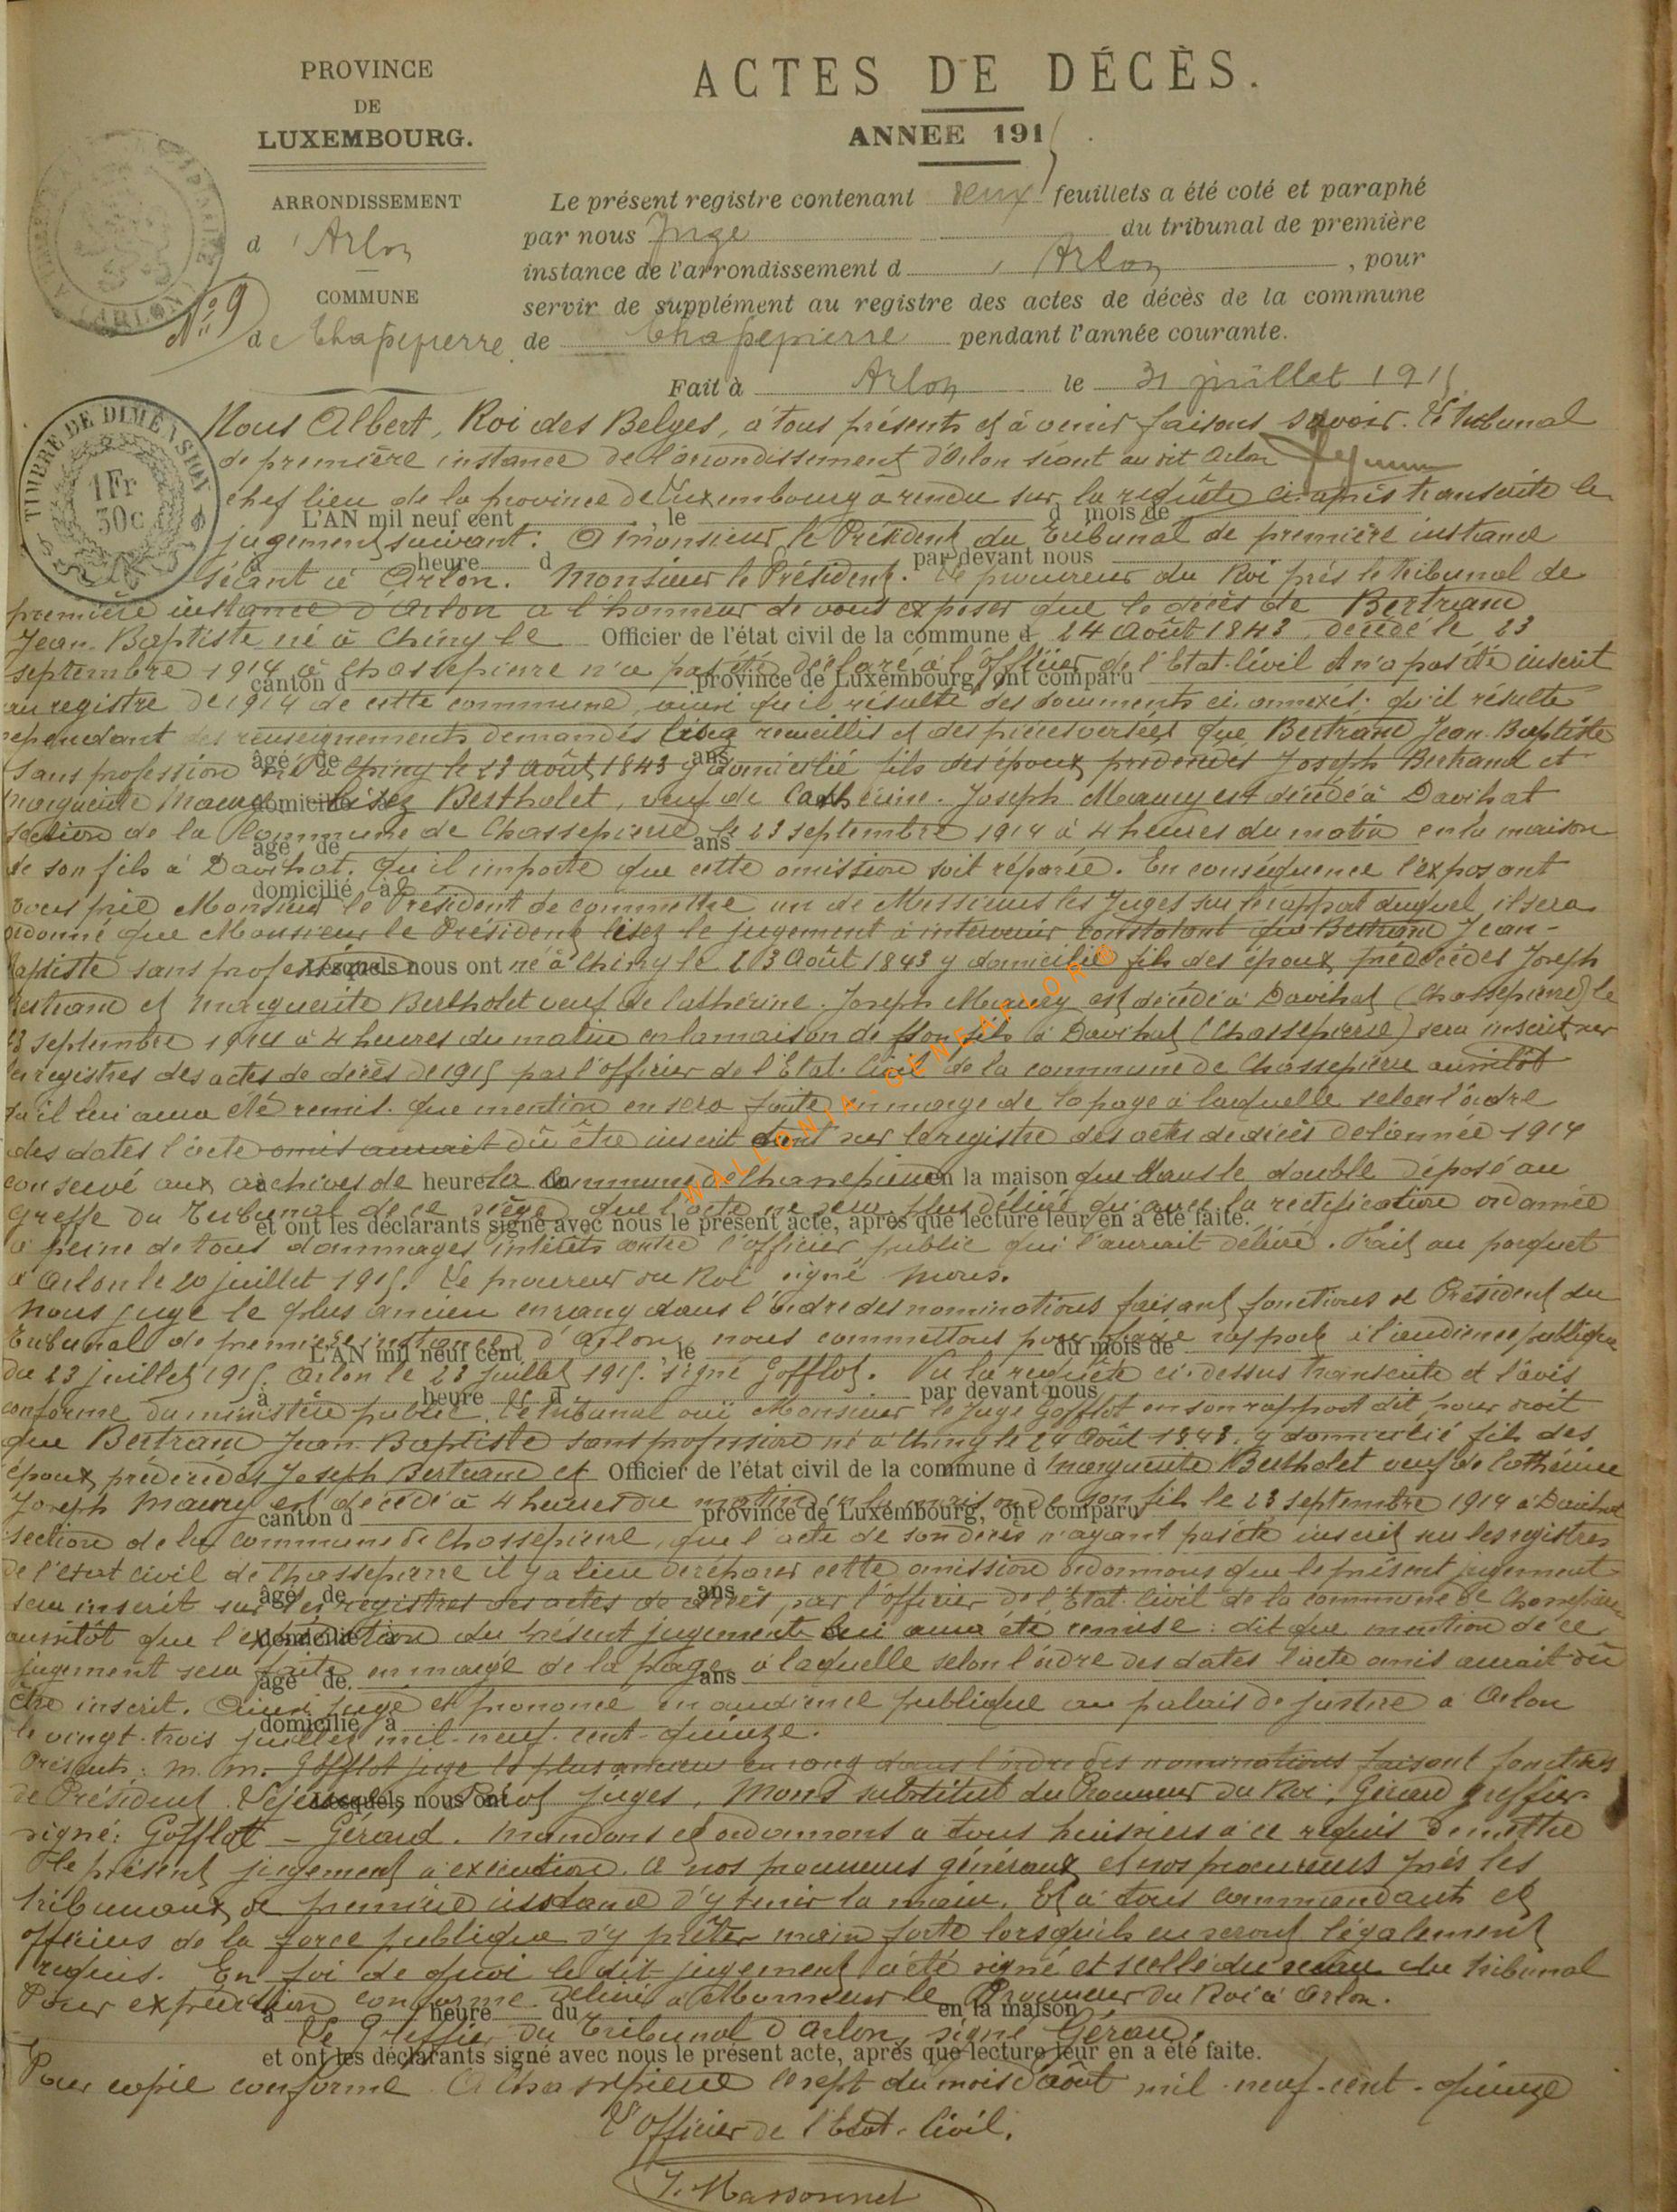 PROVINCE
DE
LUXEMBOURG.
ARRONDISSEMENT
d'Arlon
COMMUNE
N° 9
de Chassepierre
ACTES DE DÉCÈS.
ANNEE 1915.
Le présent registre contenant deux feuillets a été coté et paraphé
par nous Juge du tribunal de première
instance de l'arrondissement d'Arlon, pour
servir de supplément au registre des actes de décès de la commune
de Chassepierre pendant l'année courante.
Fait à Arlon le 31 juillet 1915
TIMBRE DE DIMENSION
1 Fr
30c
Nous Albert, Roi des Belges, à tous présents et à venir faisons savoir. Le tribunal
de première instance de l'arrondissement d'Arlon séant au dit Arlon
chef lieu de la province de Luxembourg a rendu sur la requête ci-après transcrite le
L'AN mil neuf cent , le d mois de
jugement suivant: A Monsieur le Président du Tribunal de première instance
heure d par devant nous
séant à Arlon. Monsieur le Président. Le procureur du Roi près le tribunal de
première instance d'Arlon a l'honneur de vous exposer que le décès de Bertrand
Jean-Baptiste né à Chiny le Officier de l'état civil de la commune d 24 Août 1843, décédé le 23
septembre 1914 à Chassepierre n'a pas été déclaré à l'officier de l'Etat-Civil et n'a pas été inscrit
canton d province de Luxembourg, ont comparu
au registre de 1914 de cette commune, ainsi qu'il résulte des documents ci-annexés; qu'il résulte
cependant des renseignements demandés recueillis et des pièces versées que Bertrand Jean-Baptiste
âgé de ans
sans profession né à Chiny le 23 Août 1843 y domicilié fils des époux prédécédés Joseph Bertrand et
domicilié
Marguerite Maury lisez Bertholet, veuf de Cathérine-Joseph Maury est décédé à Davihat
section de la Commune de Chassepierre le 23 septembre 1914 à 4 heures du matin en la maison
âgé de ans
de son fils à Davihat. Qu'il importe que cette omission soit réparée. En conséquence l'exposant
domicilié à
vous prie Monsieur le Président de commettre un de Messieurs les Juges sur le rapport duquel il sera
ordonné que Monsieur le Président lisez le jugement à intervenir constatant que Bertrand Jean-
Baptiste sans profession Lesquels nous ont né à Chiny le 23 Août 1843 y domicilié fils des époux prédécédés Joseph
Bertrand et Marguerite Bertholet veuf de Cathérine-Joseph Maury est décédé à Davihat (Chassepierre) le
23 septembre 1914 à 4 heures du matin en la maison de son fils à Davihat (Chassepierre) sera inscrit sur
les registres des actes de décès de 1915 par l'officier de l'Etat-Civil de la commune de Chassepierre aussitôt
qu'il lui aura été remis. Que mention en sera faite en marge de la page à laquelle selon l'ordre
des dates l'acte omis aurait dû être inscrit tant sur le registre des actes de décès de l'année 1914
conservé aux archives de heure la Commune de Chassepierre en la maison que dans le double déposé au
greffe du Tribunal de ce siège que l'acte ne sera plus délivré qu'avec la rectification ordonnée
et ont les déclarants signé avec nous le présent acte, après que lecture leur en a été faite.
à peine de tous dommages intérêts contre l'officier public qui l'aurait délivré. Fait au parquet
à Arlon le 20 juillet 1915. Le procureur du Roi signé Mons.
Nous juge le plus ancien en rang dans l'ordre des nominations faisant fonctions de Président du
Tribunal de première instance d'Arlon, nous commettons pour faire rapport à l'audience publique
L'AN mil neuf cent , le du mois de
du 23 juillet 1915. Arlon le 23 juillet 1915. signé Gofflot. Vu la requête ci-dessus transcrite et l'avis
à heure d par devant nous
conforme du ministère public. Le tribunal ouï Monsieur le Juge Gofflot en son rapport dit pour droit
que Bertrand Jean-Baptiste sans profession né à Chiny le 24 Août 1843, y domicilié fils des
époux prédécédés Joseph Bertrand et Officier de l'état civil de la commune d Marguerite Bertholet veuf de Cathérine
Joseph Maury est décédé à 4 heures du matin en la maison de son fils le 23 septembre 1914 à Davihat
canton d province de Luxembourg, ont comparu
section de la commune de Chassepierre, que l'acte de son décès n'ayant pas été inscrit sur les registres
de l'état civil de Chassepierre il y a lieu de réparer cette omission ordonnons que le présent jugement
âgé de ans
sera inscrit sur les registres des actes de décès, par l'officier de l'Etat-Civil de la commune de Chassepierre
domicilié à
aussitôt que l'expédition du présent jugement lui aura été remise: dit que mention de ce
jugement sera faite en marge de la page à laquelle selon l'ordre des dates l'acte omis aurait dû
âgé de ans
être inscrit. Ainsi jugé et prononcé en audience publique au palais de justice à Arlon
domicilié à
le vingt-trois juillet mil-neuf-cent-quinze.
Présents: M.M. Gofflot juge le plus ancien en rang dans l'ordre des nominations faisant fonctions
de Président, Lesquels nous ont juges, Mons substitut du Procureur du Roi, Gérard greffier
signé: Gofflot - Gérard. Mandons et ordonnons à tous huissiers à ce requis de mettre
le présent jugement à exécution. A nos procureurs généraux et nos procureurs près les
tribunaux de première instance d'y tenir la main. Et à tous commandants et
officiers de la force publique d'y prêter main forte lorsqu'ils en seront légalement
requis. En foi de quoi le dit jugement a été signé et scellé du sceau du tribunal
Pour expédition conforme délivré à Monsieur le Procureur du Roi à Arlon.
à heure du en la maison
Le Greffier du Tribunal d'Arlon, signé Gérard.
et ont les déclarants signé avec nous le présent acte, après que lecture leur en a été faite.
Pour copie conforme. A Chassepierre le sept du mois d'août mil-neuf-cent-quinze
L'Officier de l'Etat-Civil.
J. Massonnet
WALLONIA-GENEAFLOR©